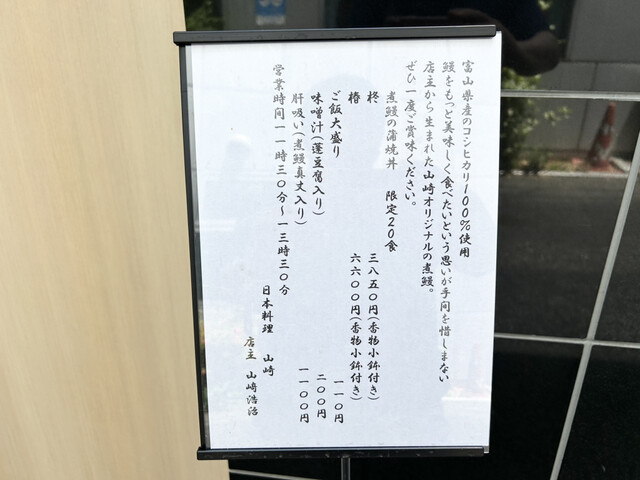 富山県産のコシヒカリ100%使用
鰻をもっと美味しく食べたいという思いが手間を惜しまない
店主から生まれた山﨑オリジナルの煮鰻。
ぜひ一度ご賞味ください。
煮鰻の蒲焼丼 限定20食
柊 三八五〇円(香物小鉢付き)
椿 六六〇〇円(香物小鉢付き)
ご飯大盛り 一一〇円
味噌汁(蓮豆腐入り) 二〇〇円
肝吸い(煮鰻真丈入り) 一一〇〇円
営業時間一一時三〇分〜一三時三〇分
日本料理 山﨑
店主 山﨑浩治